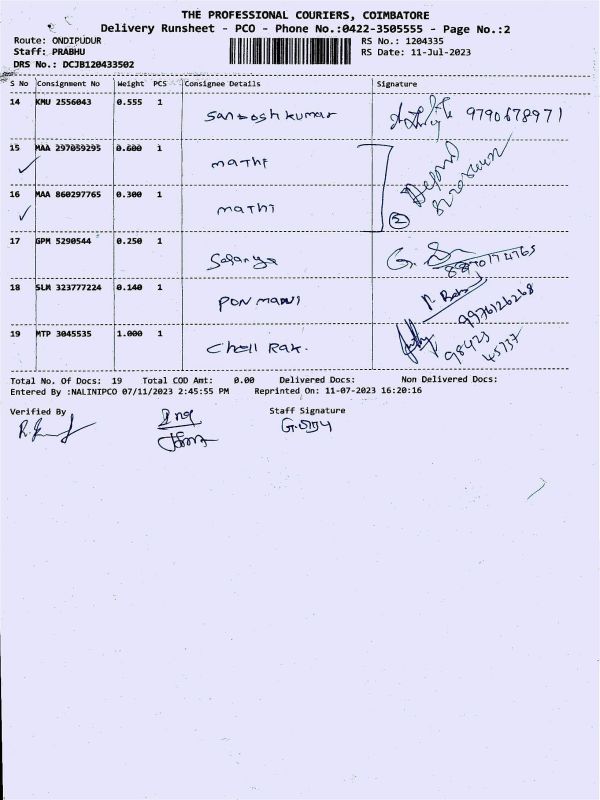 THE PROFESSIONAL COURIERS, COIMBATORE
Delivery Runsheet - PCO - Phone No.:0422-3505555 - Page No.:2
Route: ONDIPUDUR RS No.: 1204335
Staff: PRABHU RS Date: 11-Jul-2023
DRS No.: DCJB120433502
S No Consignment No Weight PCS Consignee Details Signature
14 KMU 2556043 0.555 1 Santosh kumar 9790678971
15 MAA 297059295 0.600 1 mathi
16 MAA 860297765 0.300 1 mathi 2
17 GPM 5290544 0.250 1 Saranya
18 SLM 323777224 0.140 1 PON MANI 9976126268
19 MTP 3045535 1.000 1 Chell RAK. 98423
45737
Total No. Of Docs: 19 Total COD Amt: 0.00 Delivered Docs: Non Delivered Docs:
Entered By :NALINIPCO 07/11/2023 2:45:55 PM Reprinted On: 11-07-2023 16:20:16
Verified By Staff Signature